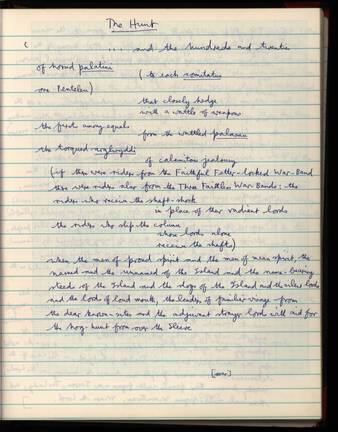 The Hunt
( ... and the hundreds and twenties
of horsed palatini
(to each comitatus
one Penteulu)
that closely hedge
with a wattle of weapons
the firsts among equals
from the wattled palasau
the torqued arglwyddi
of calamitous jealousy
(if there were riders from the Faithful Fetter-locked War-Band
there were riders also from the Three Faithless War-Bands: the
riders who receive the shaft-shock
in place of their radiant lords
the riders who slip the column
whose lords alone
receive the shafts)
when the men of proud spirit and the men of mean spirit, the
named and the unnamed of the Island and the name-bearing
steeds of the Island and the dogs of the Island and the silent lords
and the lords of loud mouth, the leaders of familiar visage from
the dear known-sites and the adjuvant stranger lords with aid for
the hog-hunt from over the Sleeve
[over]